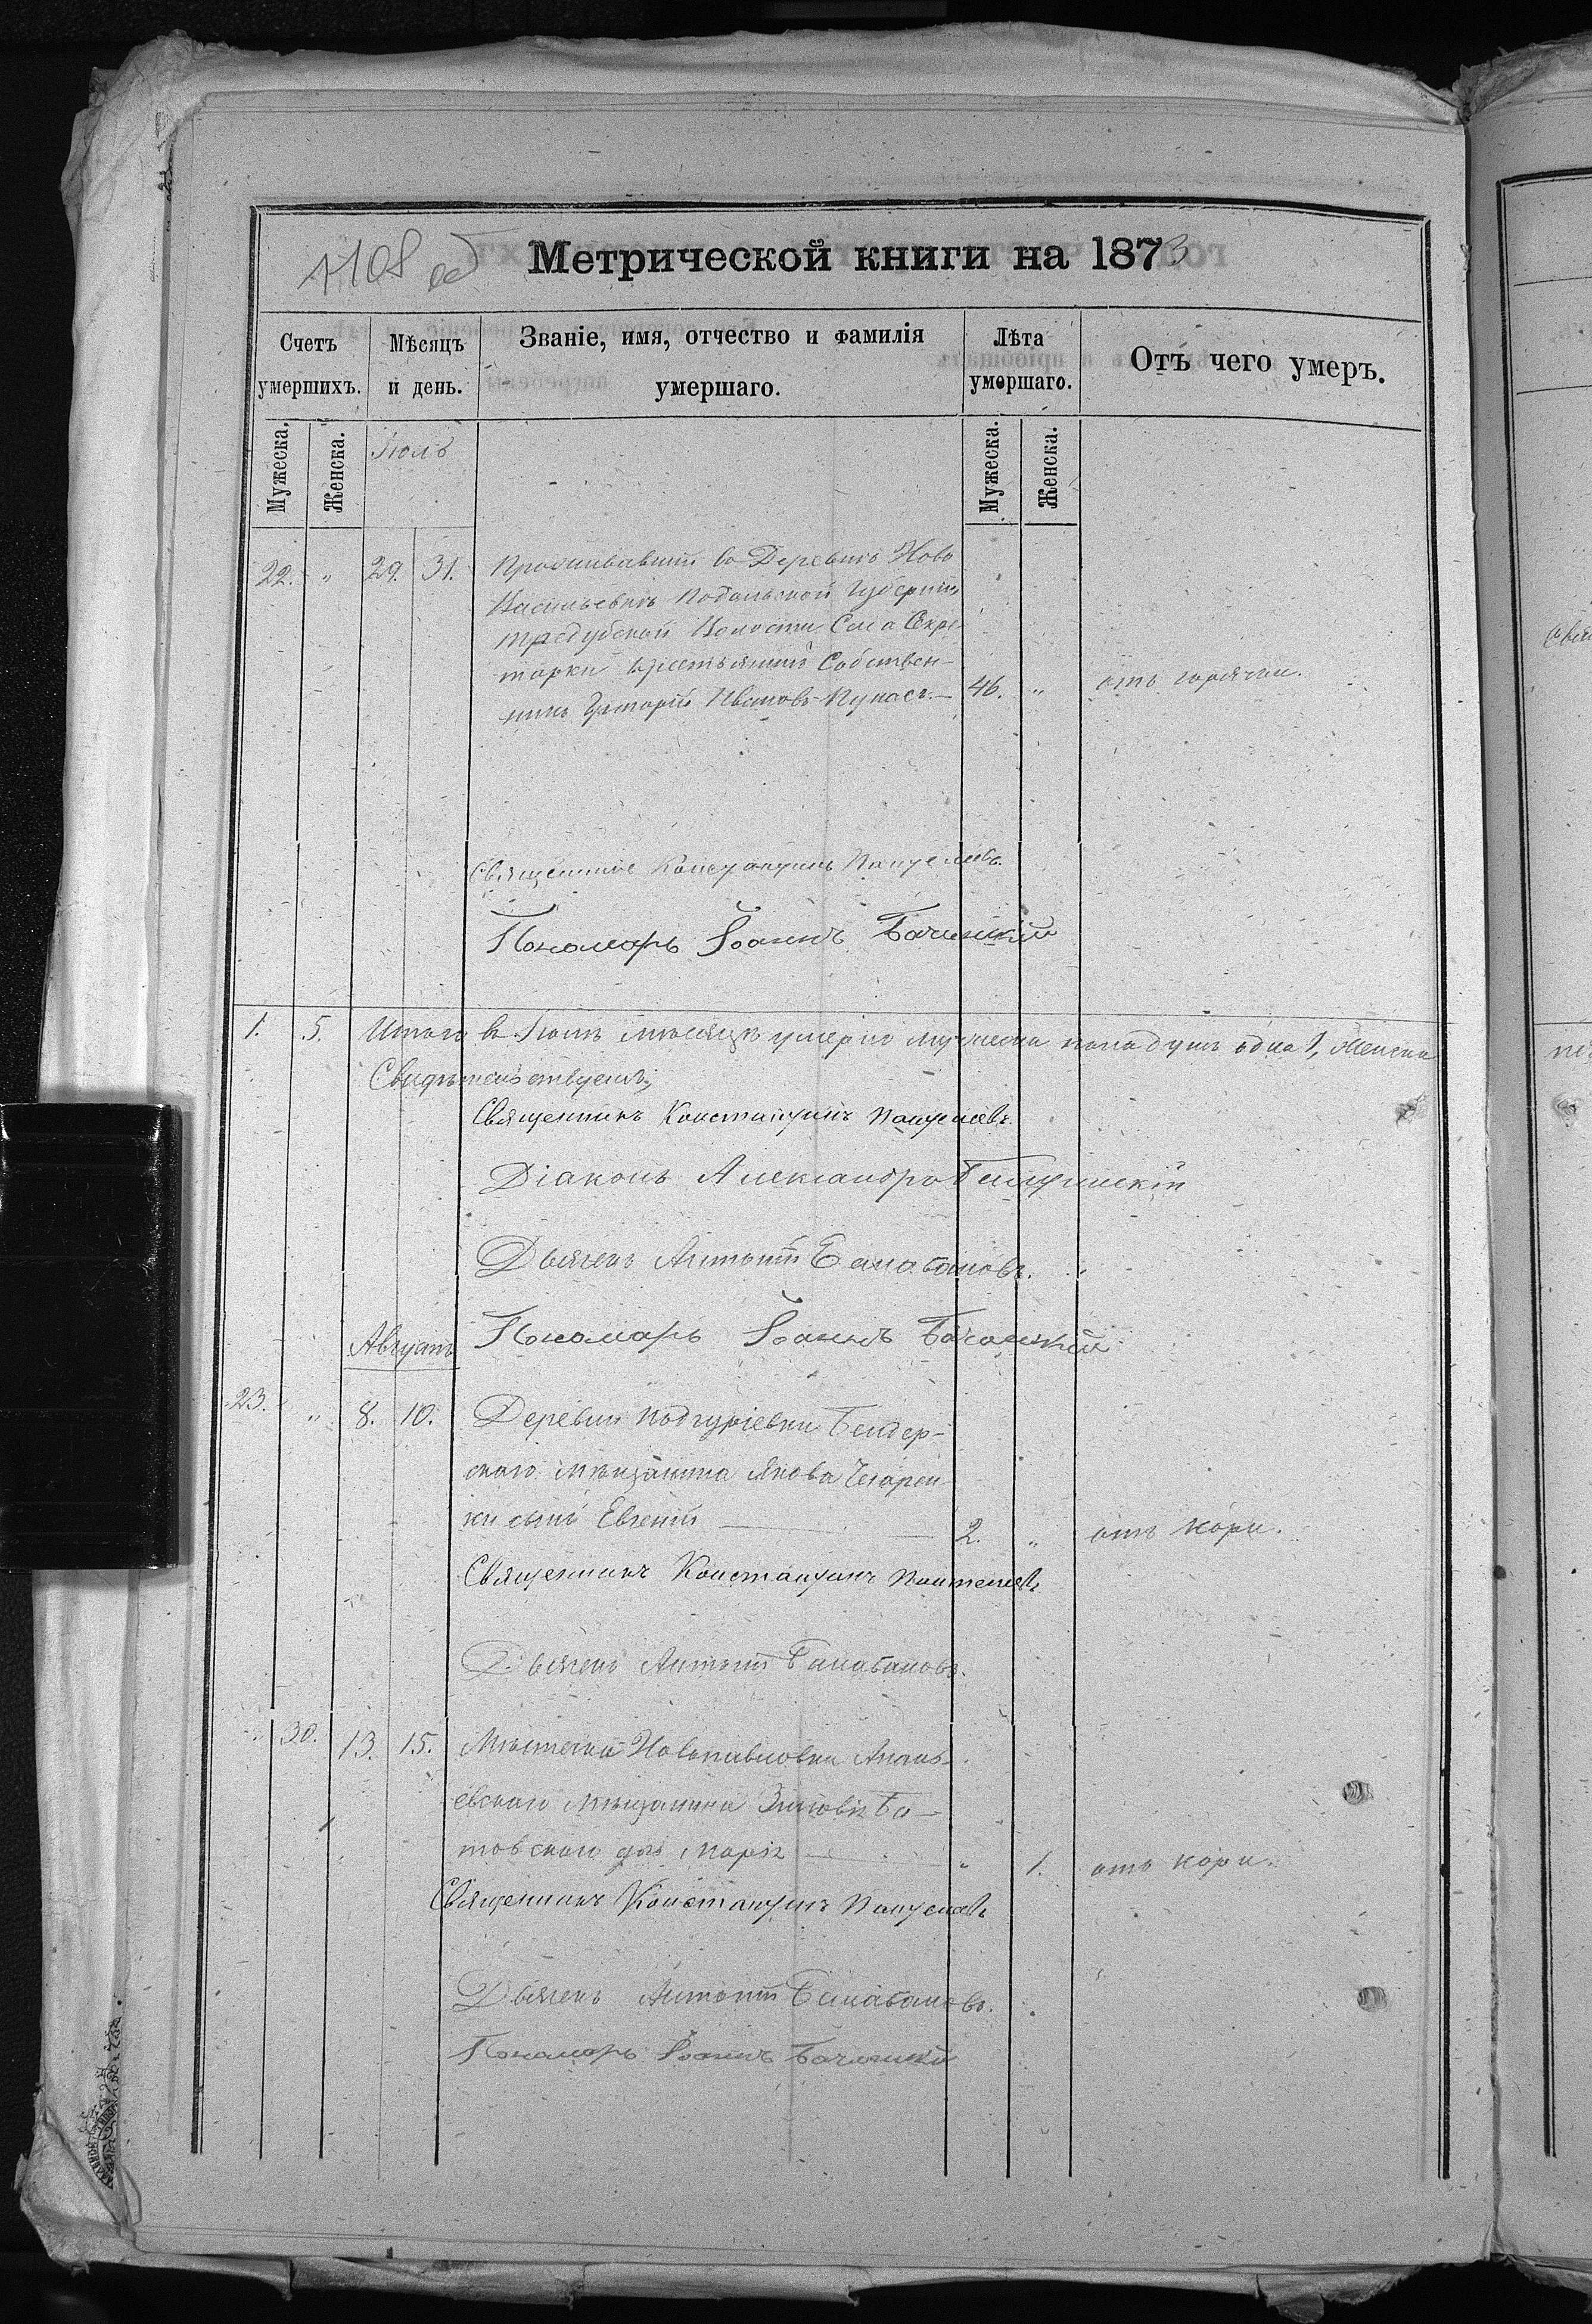 1108 об
Метрической книги на 1873
Счетъ умершихъ.
Мѣсяцъ и день.
Званіе, имя, отчество и фамилія умершаго.
Лѣта умершаго.
Отъ чего умеръ.
Мужеска,
Женска.
Іюль
Мужеска.
Женска.
22. " 29. 31. Проживавшій въ Деревнѣ Ново
Васильевкѣ Подольской Губерніи
Волости Села Секре-
тарки крестьянинъ Собствен-
никъ Григорій Ивановъ Пупасъ.— 46. " отъ горячки.
Священникъ Константинъ Пантелеевъ
Пономарь Іоаннъ Бачинскій
1. 5. Итого въ Іюлѣ мѣсяцѣ умерло мужеска пола душъ одна 1, Женска
Свидѣтельствуемъ,
Священникъ Константинъ Пантелеевъ.
Діаконъ Александръ
Дьячекъ Антоній Балабановъ.
Пономарь Іоаннъ Бачинскій
Августъ
23. " 8. 10. Деревни Бендер-
скаго мѣщанина Якова
ки сынъ Евгеній 2. " отъ кори.
Священникъ Константинъ Пантелеевъ
Дьячекъ Антоній Балабановъ.
" 30. 13. 15. Мѣстечка Новопавловки Анань-
евскаго мѣщанина Зиновія Бо-
товскаго дочь Марія " 1. отъ кори.
Священникъ Константинъ Пантелеевъ
Дьячекъ Антоній Балабановъ.
Пономарь Іоаннъ Бачинскій